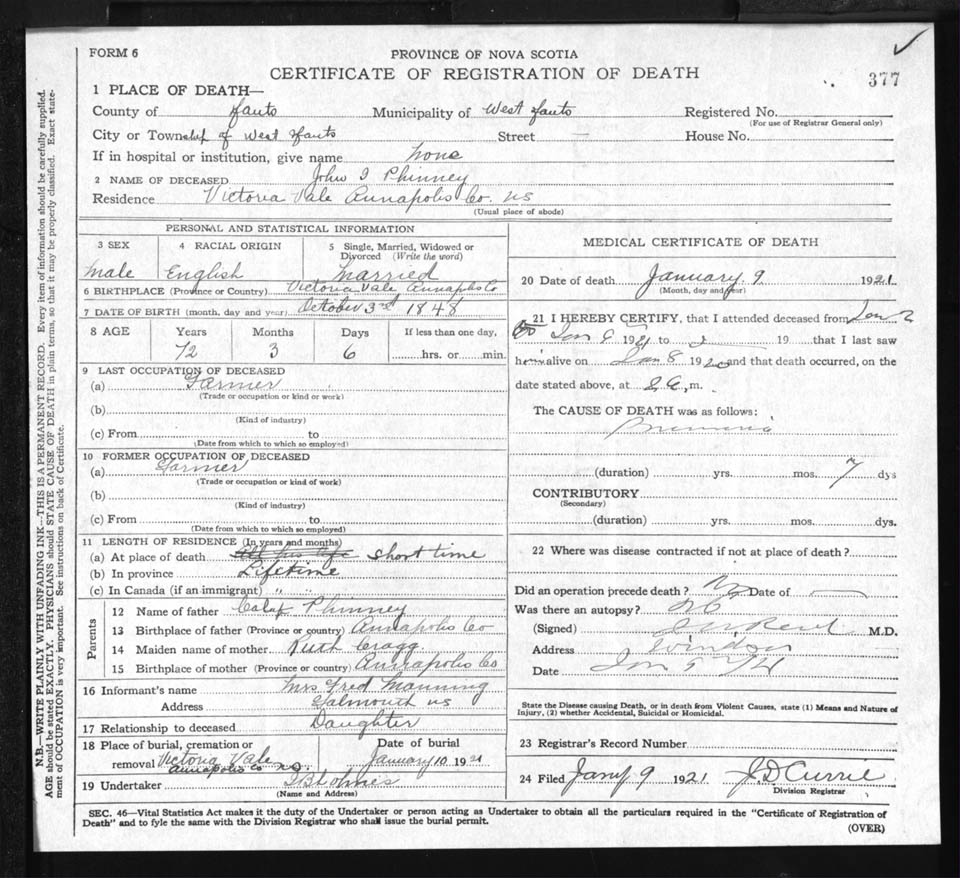 FORM 6
PROVINCE OF NOVA SCOTIA
CERTIFICATE OF REGISTRATION OF DEATH
377
1 PLACE OF DEATH—
County of Hants Municipality of West Hants Registered No.
(For use of Registrar General only)
City or Township of West Hants Street — House No.
If in hospital or institution, give name none
2 NAME OF DECEASED John I Phinney
Residence Victoria Vale Annapolis Co. NS
(Usual place of abode)
PERSONAL AND STATISTICAL INFORMATION
3 SEX 4 RACIAL ORIGIN 5 Single, Married, Widowed or Divorced (Write the word)
Male English Married
6 BIRTHPLACE (Province or Country) Victoria Vale Annapolis Co
7 DATE OF BIRTH (month, day and year) October 3rd 1848
8 AGE Years Months Days If less than one day,
72 3 6 hrs. or min.
9 LAST OCCUPATION OF DECEASED
(a) Farmer
(Trade or occupation or kind or work)
(b)
(Kind of industry)
(c) From to
(Date from which to which so employed)
10 FORMER OCCUPATION OF DECEASED
(a) Farmer
(Trade or occupation or kind of work)
(b)
(Kind of industry)
(c) From to
(Date from which to which so employed)
11 LENGTH OF RESIDENCE (In years and months)
(a) At place of death All his life short time
(b) In province Lifetime
(c) In Canada (if an immigrant) " "
Parents
12 Name of father Calaf Phinney
13 Birthplace of father (Province or country) Annapolis Co
14 Maiden name of mother Ruth Cragg
15 Birthplace of mother (Province or country) Annapolis Co
16 Informant's name Mrs Fred Manning
Address Falmouth NS
17 Relationship to deceased Daughter
18 Place of burial, cremation or removal Victoria Vale Annapolis Co NS. Date of burial January 10 1921
19 Undertaker
(Name and Address)
MEDICAL CERTIFICATE OF DEATH
20 Date of death January. 9 1921
(Month, day and year)
21 I HEREBY CERTIFY, that I attended deceased from Jan 2
Jan 9 1921 to 19 that I last saw
him alive on Jan 8 1920 and that death occurred, on the
date stated above, at m.
The CAUSE OF DEATH was as follows:
(duration) yrs. mos. 7 dys
CONTRIBUTORY
(Secondary)
(duration) yrs. mos. dys.
22 Where was disease contracted if not at place of death?
Did an operation precede death? No Date of —
Was there an autopsy? No
(Signed) M.D.
Address Windsor
Date Jan
State the Disease causing Death, or in death from Violent Causes, state (1) Means and Nature of
Injury, (2) whether Accidental, Suicidal or Homicidal.
23 Registrar's Record Number
24 Filed Jany 9 1921 J.D Currie
Division Registrar
SEC. 46—Vital Statistics Act makes it the duty of the Undertaker or person acting as Undertaker to obtain all the particulars required in the "Certificate of Registration of
Death" and to fyle the same with the Division Registrar who shall issue the burial permit.
(OVER)
N.B.—WRITE PLAINLY WITH UNFADING INK—THIS IS A PERMANENT RECORD. Every item of information should be carefully supplied.
AGE should be stated EXACTLY. PHYSICIANS should STATE CAUSE OF DEATH in plain terms, so that it may be properly classified. Exact state-
ment of OCCUPATION is very important. See instructions on back of Certificate.